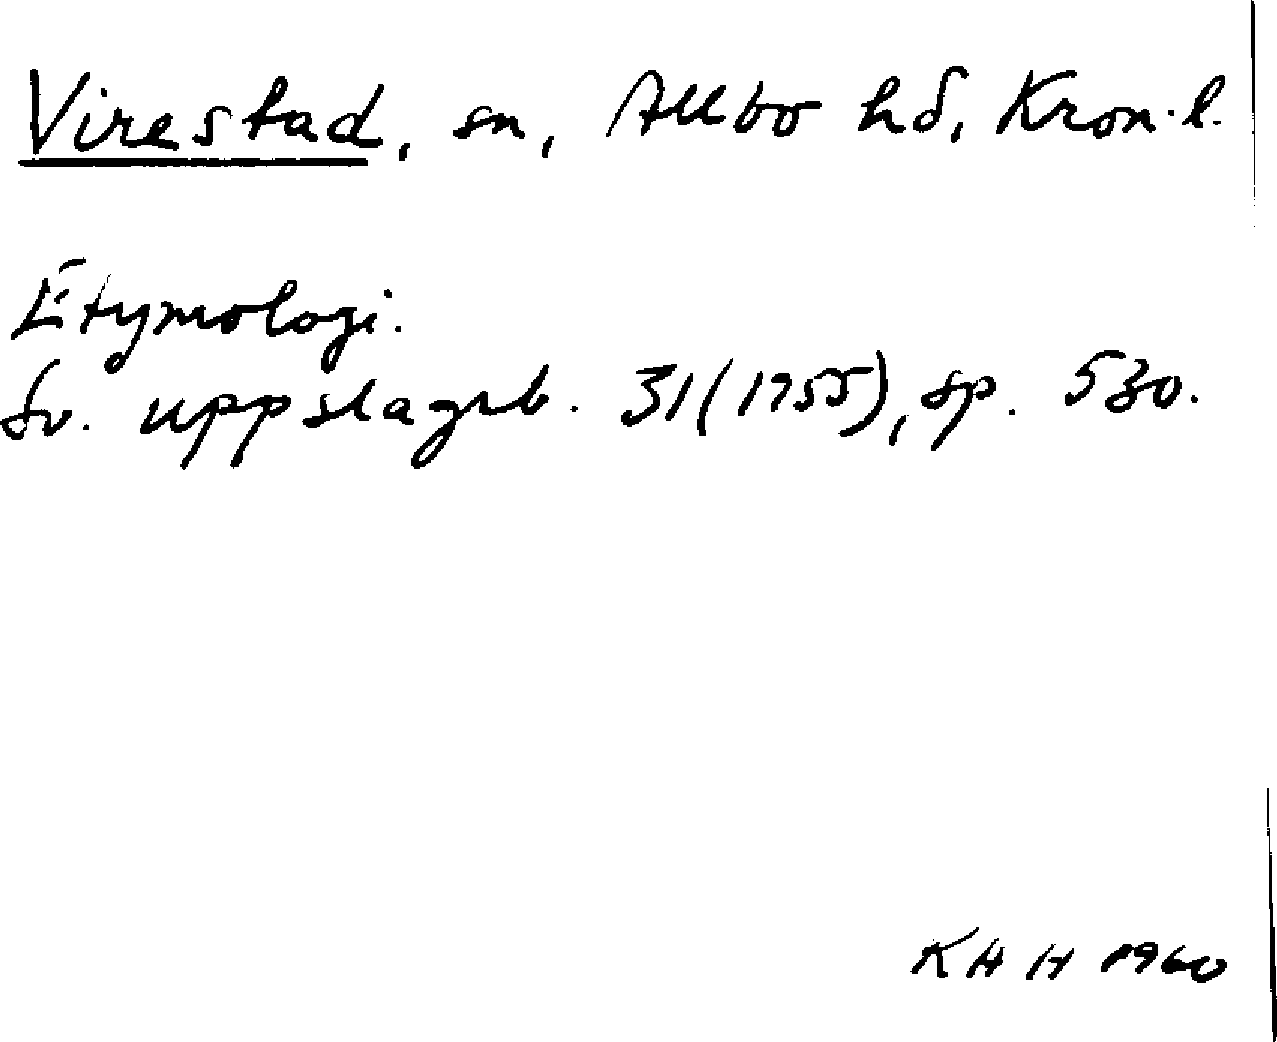 Virestad, sn, Allbo hd, Kron. l.
Etymologi.
Sv. uppslagsb. 31 (1955), sp. 530.
KHH 1960